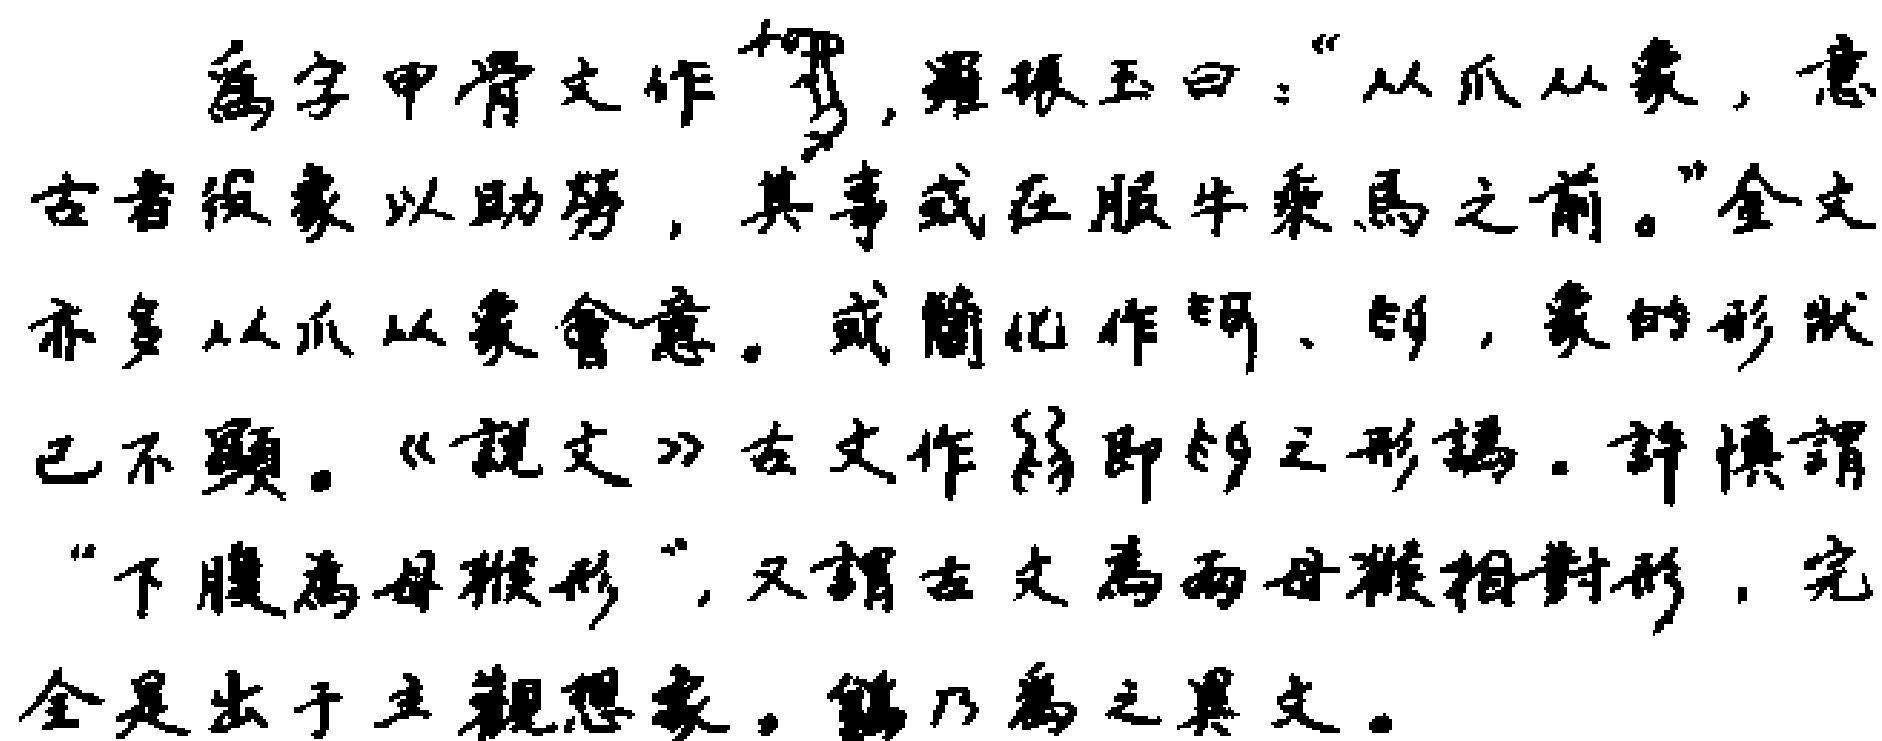 為字甲骨文作，羅振玉曰："从爪从象，意
古者役象以助勞，其事或在服牛乘馬之前。"金文
亦多从爪从象會意。或簡化作、，象的形狀
已不顯。《說文》古文作即之形譌。許慎謂
"下腹為母猴形"，又謂古文為兩母猴相對形，完
全是出于主觀想象。乃為之異文。